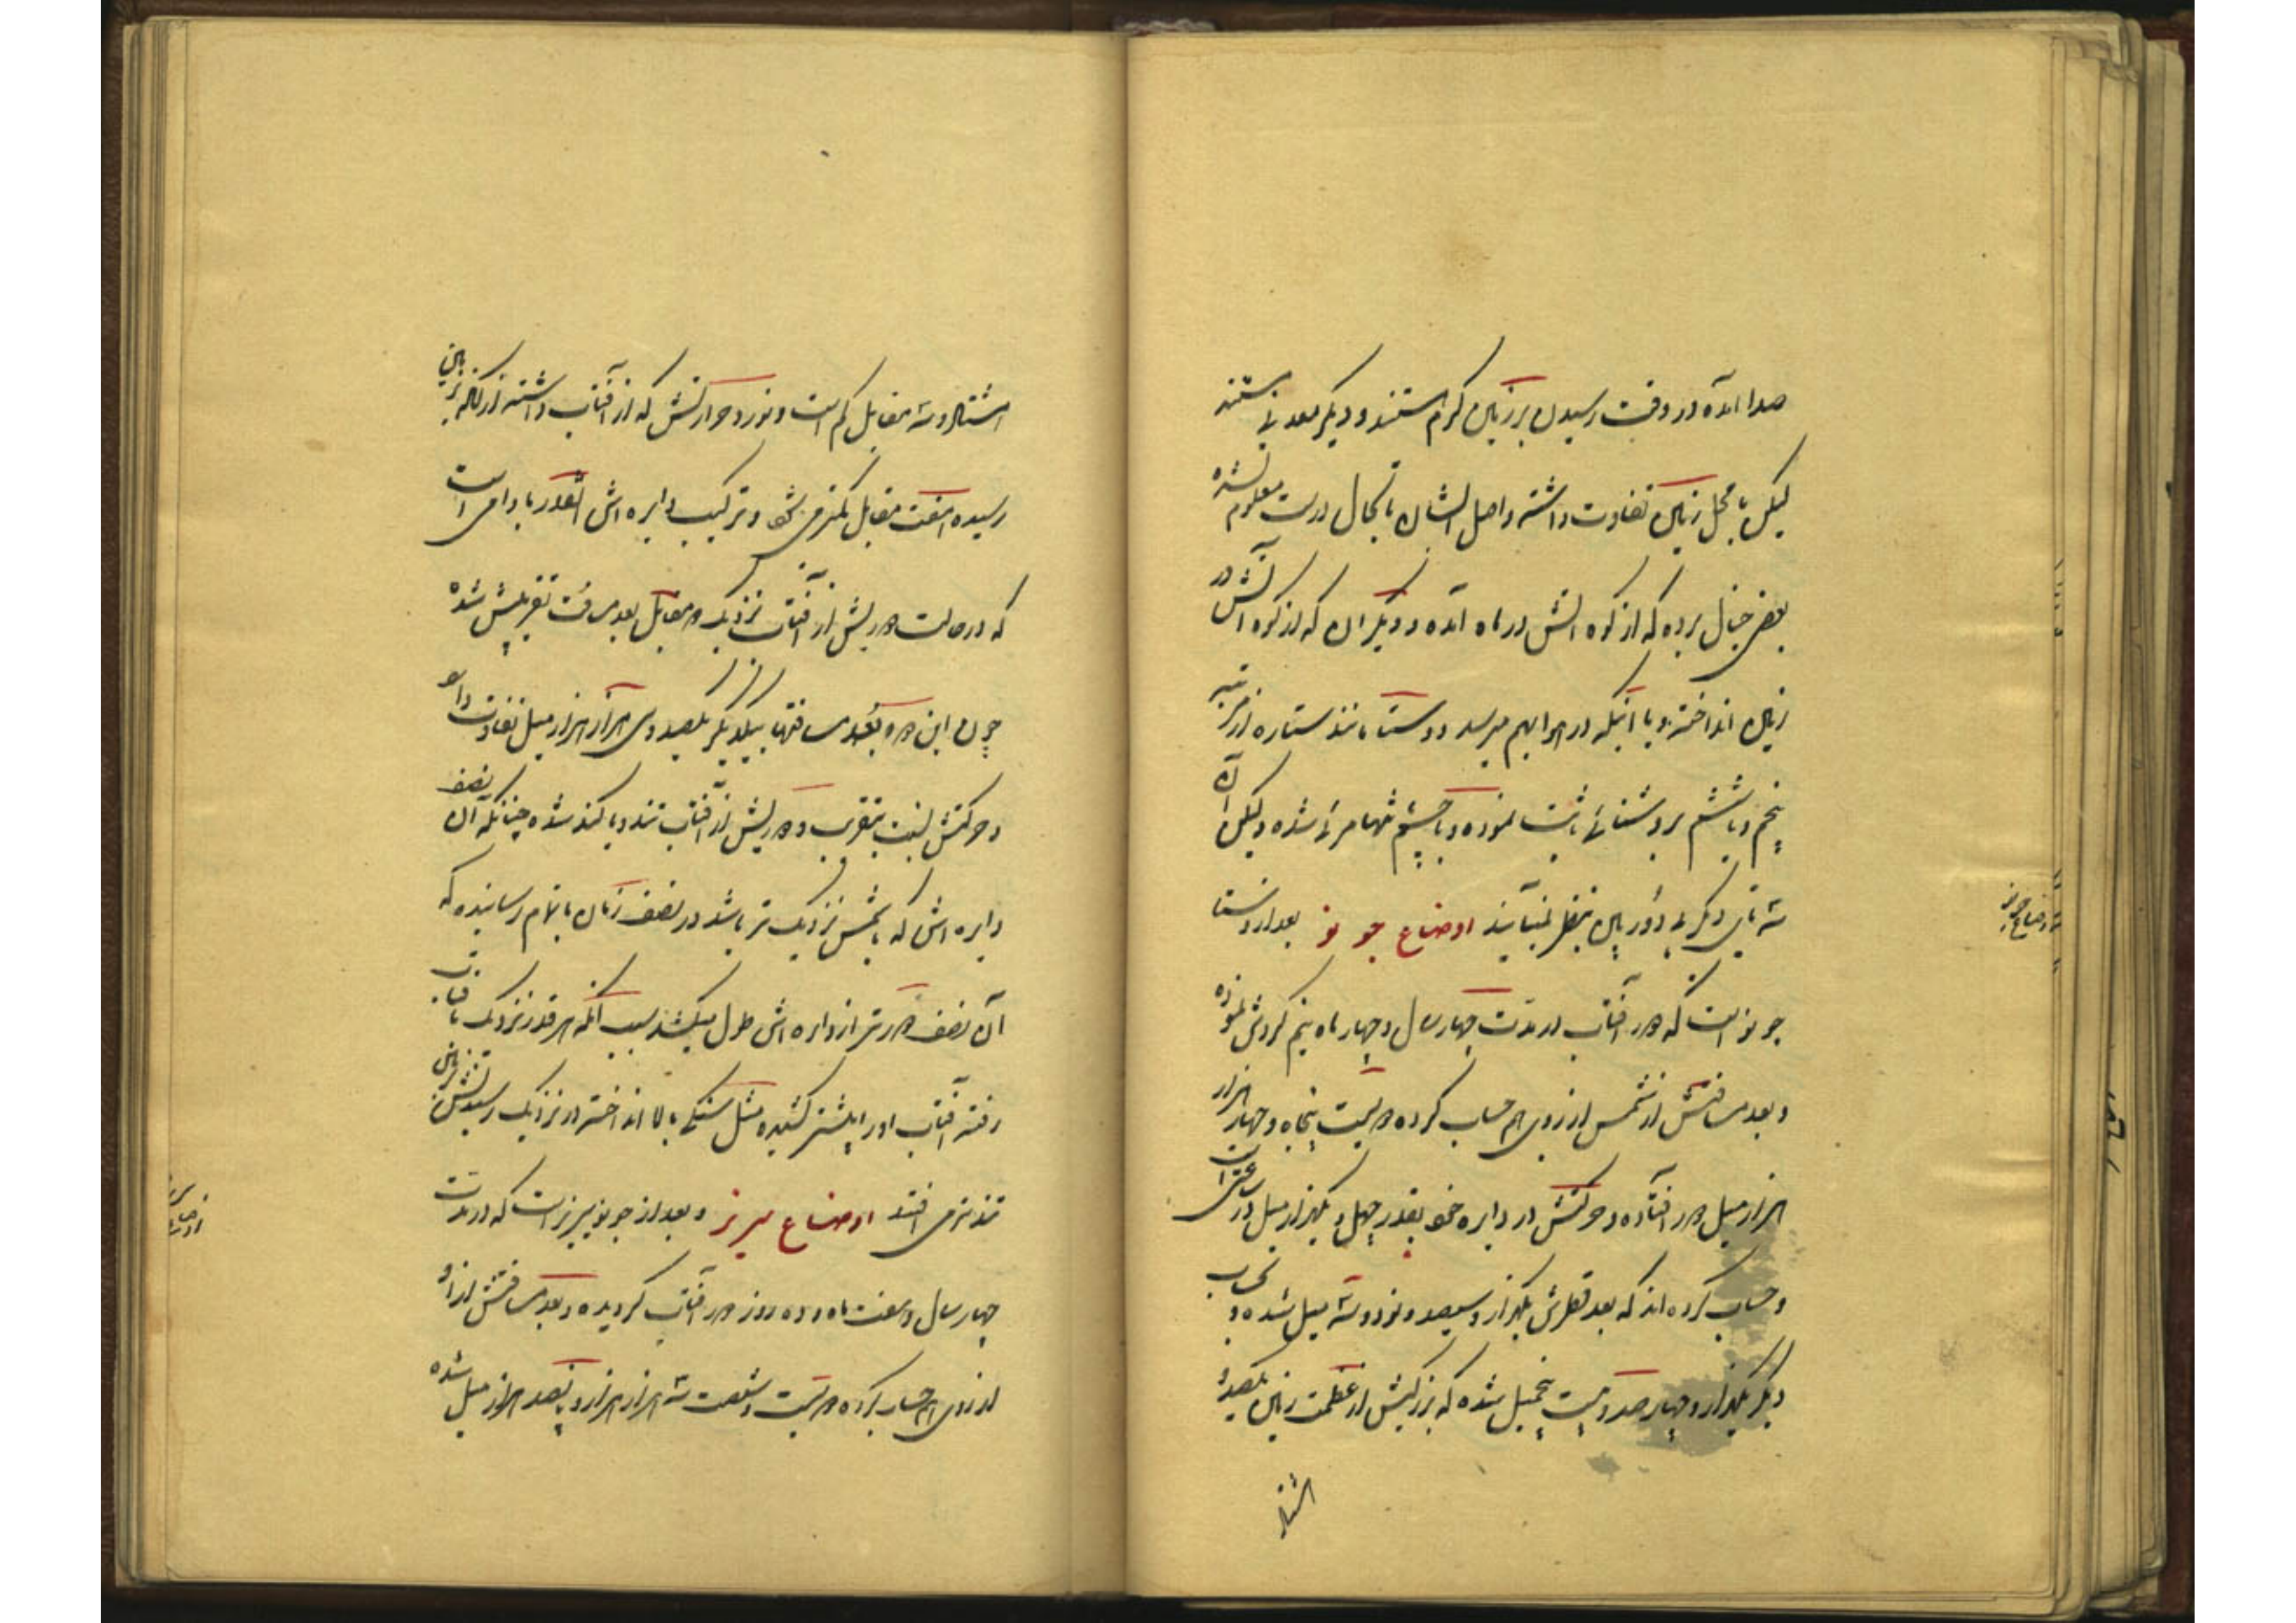 صدا آمده در وقت رسیدن بر زمین گرم هستند و دیگر معدنی نیستند
لیکن با محل زمین تفاوت داشته و اصل ایشان تا بحال درست معلوم نشده
بعضی خیال برده که از کوه آتش در ماه آمده و دیگران که از کوه آتش در
زمین انداخته و یا اینکه در هوا بهم میرسد و وستا مانند ستاره از مرتبه
پنجم و یا ششم بروشنائی ثابت نموده و با چشم تنها مرئی شده ولیکن آن
سه تای دیگر بی دوربین بنظر نمیآیند اوضاع جونو بعد از وستا
جونو است که دور آفتاب در مدت چهار سال و چهار ماه نیم گردش نموده
و بعد مسافتش از شمس از روی هم حساب کرده دویست پنجاه و چهار هزار
هزار میل دور افتاده و حرکتش در دایره خود بقدر چهل و یکهزار میل در ساعتی است
و حساب کرده اند که بعد قطرش یکهزار و سیصد و نود و سه میل شده و بحساب
دیگر یکهزار و چهار صد و بیست پنج میل شده که بزرگیش از عظمت زمین یکصد و
اوضاع جونو
اشتاد و سه مقابل کم است و نور و حرارتش که از آفتاب داشته از آنکه بزمین
رسیده هفت مقابل کمتر می شود و ترکیب دایره اش آنقدر بادامی است
که در حالت دوریش از آفتاب نزدیک دو مقابل بعد مسافت تقریبش شده
چون این دو بعد مسافتها بیکدیگر یکصد و سی هزار هزار میل تفاوت دارد
و حرکتش نسبت بتقرب و دوریش از آفتاب تند و یا کند شده چنانکه آن نصف
دایره اش که بشمس نزدیک تر باشد در نصف زمان باتمام رسانیده که
آن نصف دورتر از دایره اش طول میکشد بسبب آنکه هر قدر نزدیک بآفتاب
رفته آفتاب او را پیشتر کشیده مثل سنگی بالا انداخته در نزدیک رسیدنش بزمین
تندتر می افتد اوضاع سیریز و بعد از جونو سیریز است که در مدت
چهار سال و هفت ماه و ده روز دور آفتاب گردیده و بعد مسافتش از او
از روی هم حساب کرده دویست و شصت سه هزار هزار و پانصد هزار میل شده